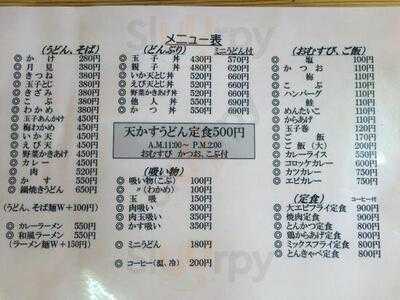 メニュー表
(うどん、そば)
◎ か け 280円
◎ 月 見 380円
◎ きつね 380円
◎ 玉子とじ 380円
◎ きざみ 380円
◎ こ ぶ 380円
◎ わかめ 380円
◎ 玉子あんかけ 430円
◎ 梅わかめ 450円
◎ いか天 450円
◎ えび天 450円
◎ 野菜かきあげ 450円
◎ カレー 450円
◎ 肉 520円
◎ か す 550円
◎ 鍋焼きうどん 650円
(うどん、そば麺W+100円)
◎ カレーラーメン 550円
◎ 和風ラーメン 550円
(ラーメン麺W+150円)
(どんぶり) ミニうどん付
◎ 玉 子 丼 430円 570円
◎ 親 子 丼 480円 620円
◎ いか天とじ丼 520円 660円
◎ えび天とじ丼 520円 660円
◎ 野菜かきあげ丼 520円 660円
◎ 他 人 丼 550円 690円
◎ か す 丼 550円 690円
天かすうどん定食500円
A.M.11:00~ P.M.2:00
おむすび かつお、こぶ付
(吸い物)
◎ 吸い物(こぶ) 100円
◎ 〃(わかめ) 100円
◎ 玉 吸 150円
◎ 肉吸い 300円
◎ 肉玉吸い 350円
◎ かす吸い 350円
◎ ミニうどん 180円
◎ コーヒー(温、冷) 200円
(おむすび、ご飯)
◎ 塩 100円
◎ かつお 110円
◎ 梅 110円
◎ こ ぶ 110円
◎ ハンバーグ 110円
◎ 鮭 110円
◎ めんたいこ 110円
◎ からあげ 110円
◎ 玉子巻 120円
◎ ご 飯 170円
◎ ご 飯 (大) 200円
◎ カレーライス 550円
◎ コロッケカレー 650円
◎ カツカレー 750円
◎ エビカレー 750円
(定食) コーヒー付
◎ 大エビフライ定食 900円
◎ 焼肉定食 900円
◎ とんかつ定食 800円
◎ 鶏からあげ定食 800円
◎ ミックスフライ定食 800円
◎ とんきゃべ定食 800円